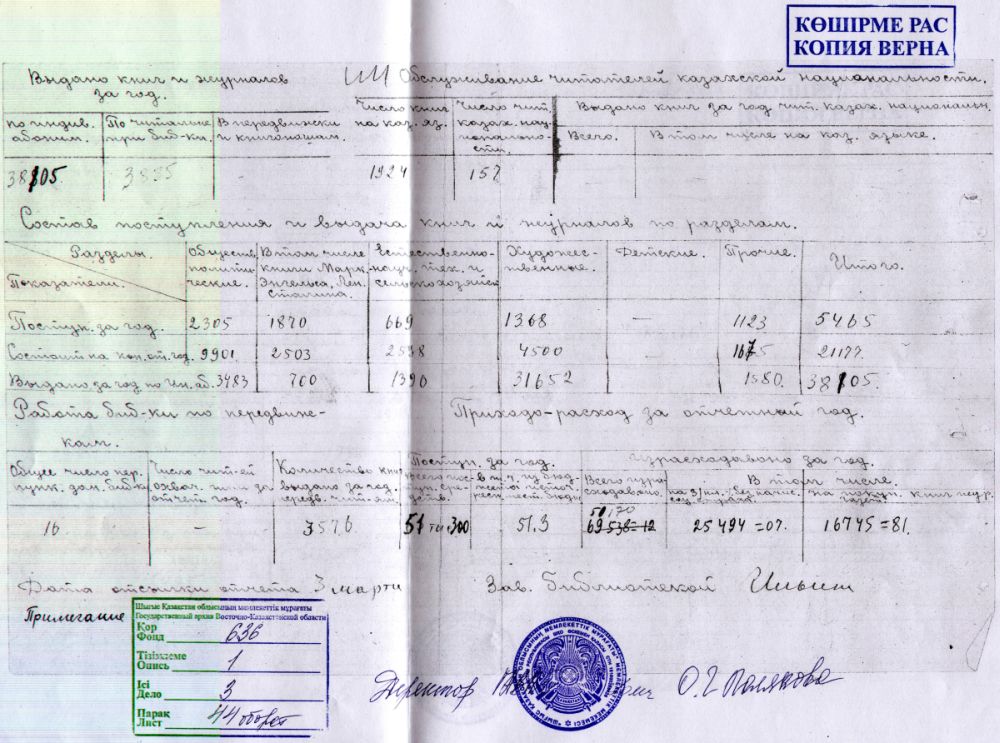 КӨШІРМЕ РАС
КОПИЯ ВЕРНА
Выдано книг и журналов за год.
III Обслуживание читателей казахской национальности.
по индив. абонем.
По читальне при биб-ки.
В передвижки и книгоношам.
Число книг на каз. яз.
Число чит. казах. национальности.
Выдано книг за год чит. казах. национальн.
Всего.
В том числе на каз. языке.
38105 3835 - 1924 157
Состав поступления и выдача книг и журналов по разделам.
Разделы. Показатели.
Обществ. политические.
В том числе книги Марк. Энгельса, Лен. Сталина.
Естественно-науч. тех. и сельскохозяйст
Художественные.
Детские.
Прочие.
Итого.
Поступ. за год. 2305 1870 669 1368 — 1123 5465
Состоит на кон. от. год. 9901. 2503 4500 — 1675 21177.
Выдано за год по ин. аб. 3483 700 1390 31652 1580. 38105.
Работа биб-ки по передвижкам.
Приходо-расход за отчетный год.
Общее число пер. пунк.
Количество книг выдано за год
Поступ. за год.
Израсходовано за год.
В том числе.
16 - 3576 51.3 69538=12 25494=07. 16745=81.
Дата отсылки отчета 3 марта
Зав. библиотекой
Примечание
Шығыс Қазақстан облысының мемлекеттік мұрағаты
Государственный архив Восточно-Казахстанской области
Қор
Фонд 636
Тізімдеме
Опись 1
Ісі
Дело 3
Парақ
Лист 44 оборот
Директор О.Г Полякова